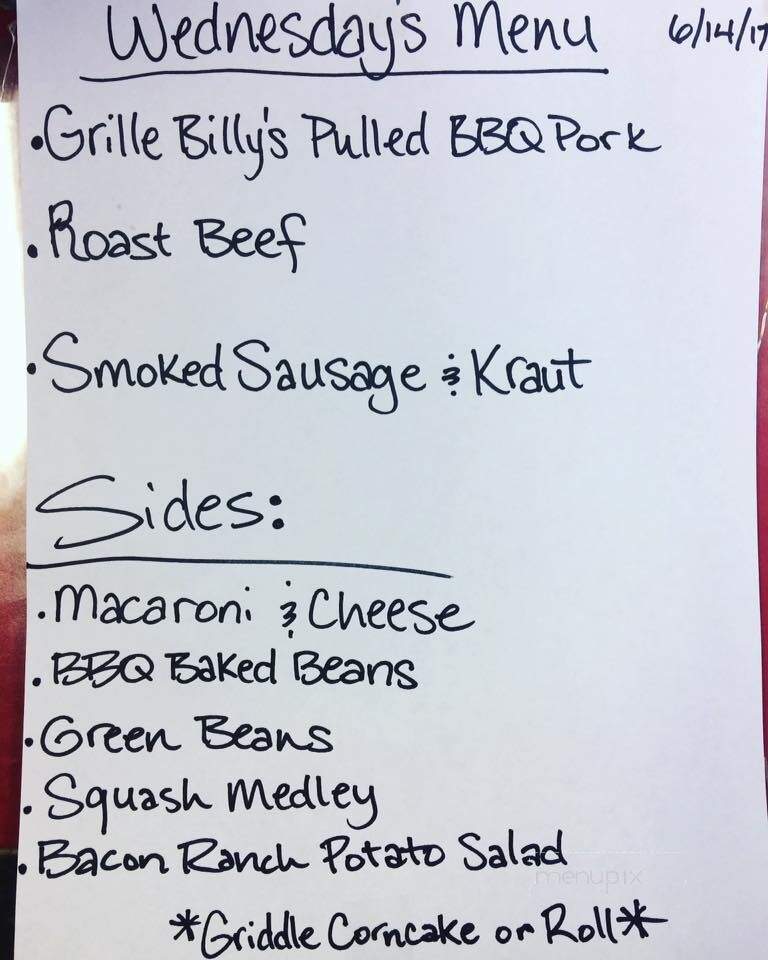 Wednesday's Menu 6/14/17
• Grille Billy's Pulled BBQ Pork
• Roast Beef
• Smoked Sausage & Kraut
Sides:
• Macaroni & Cheese
• BBQ Baked Beans
• Green Beans
• Squash Medley
• Bacon Ranch Potato Salad
menupix
*Griddle Corncake or Roll*